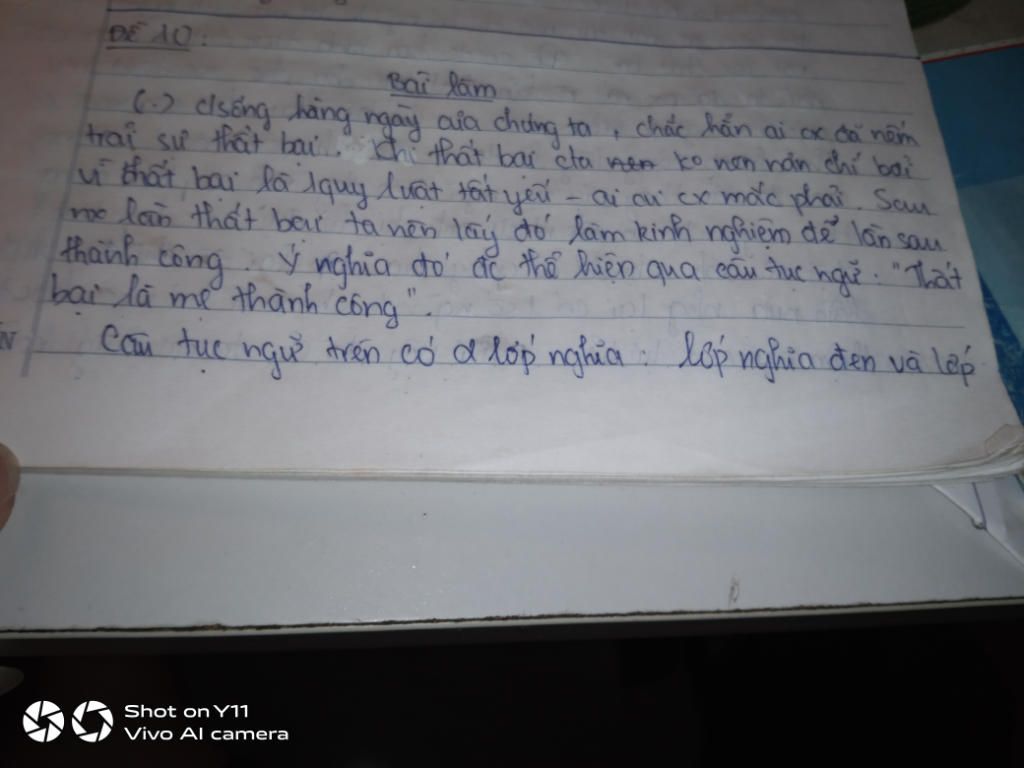 ĐỀ 10:
Bài làm
(.) c/sống hàng ngày của chúng ta, chắc hẳn ai cx đã nếm
trải sự thất bại. Khi thất bại cta nen ko nen nản chí bởi
vì thất bại là 1 quy luật tất yếu - ai ai cx mắc phải. Sau
mỗi lần thất bại ta nên lấy đó làm kinh nghiệm để lần sau
thành công. Ý nghĩa đó đc thể hiện qua câu tục ngữ: "Thất
bại là mẹ thành công".
Câu tục ngữ trên có 2 lớp nghĩa: lớp nghĩa đen và lớp
Shot on Y11
Vivo AI camera